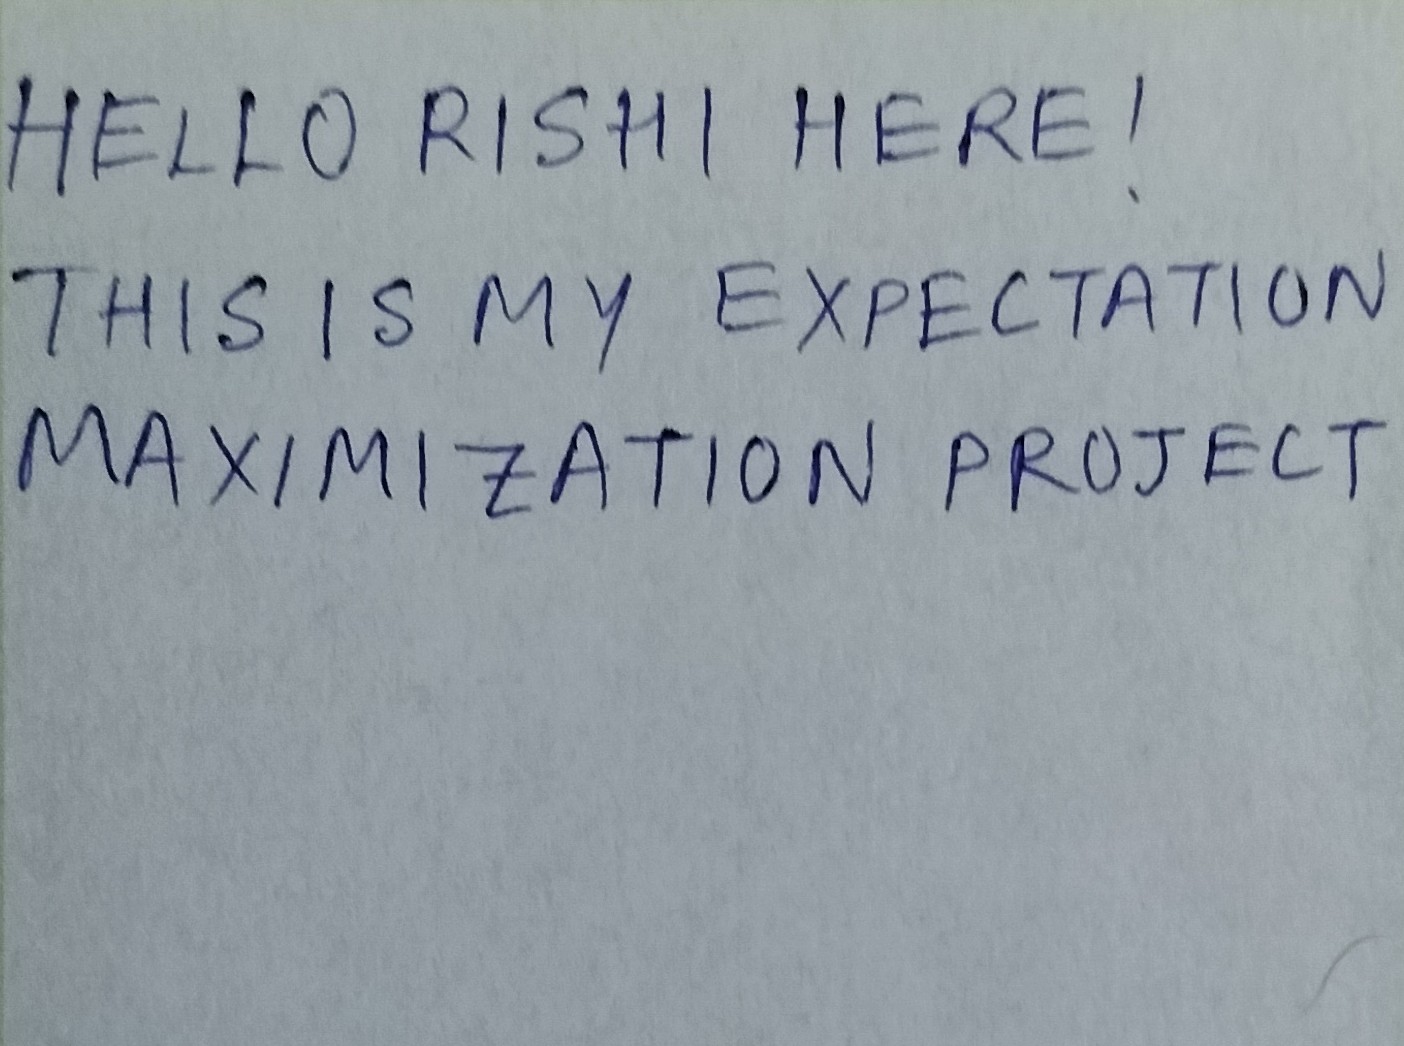 HELLO RISHI HERE!
THIS IS MY EXPECTATION
MAXIMIZATION PROJECT